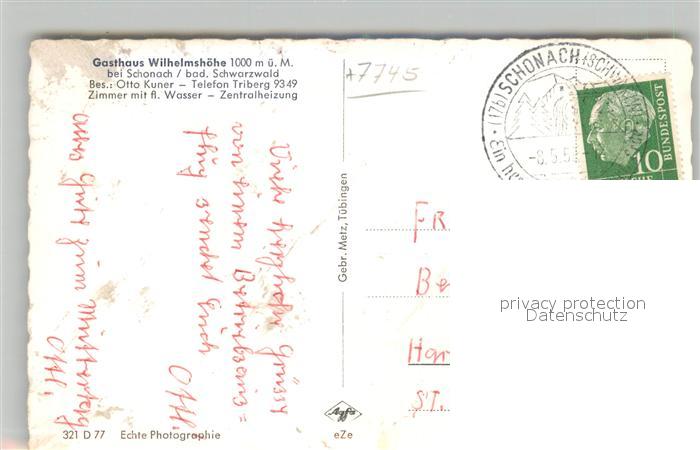 Gasthaus Wilhelmshöhe 1000 m ü. M.
bei Schonach / bad. Schwarzwald
Bes.: Otto Kuner – Telefon Triberg 9349
Zimmer mit fl. Wasser – Zentralheizung
A7745
Viele herzliche Grüsse
von unsrem Betriebsaus=
flug sendet Euch
Otti,
alles Gute zum Muttertag
Otti,
Gebr. Metz, Tübingen
(17b) SCHONACH (SCHW
-8.5.5
BUNDESPOST
10
FR
Be
Har
ST.
privacy protection
Datenschutz
Agfa
321 D 77 Echte Photographie eZe